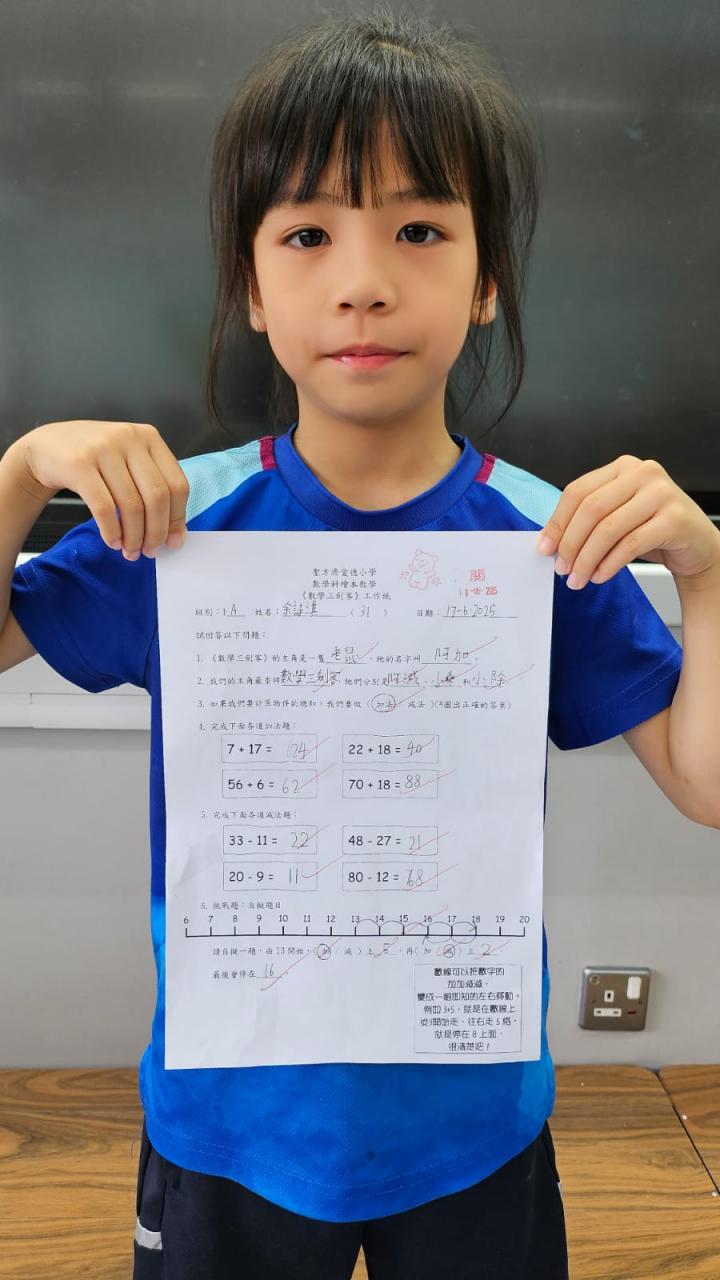 聖方濟愛德小學
數學科繪本教學
《數學三劍客》工作紙
班別：1A 姓名：余詩淇 （ 31 ） 日期：17-6-2025
試回答以下問題：
1. 《數學三劍客》的主角是一隻老鼠，牠的名字叫阿加。
2. 我們的主角最崇拜數學三劍客，牠們分別是阿減、小乘和小除
3. 如果我們要計算物件的總和，我們要做（ 加法 / 減法 ）(*圈出正確的答案)
4. 完成下面各道加法題：
7 + 17 = 24 22 + 18 = 40
56 + 6 = 62 70 + 18 = 88
5. 完成下面各道減法題：
33 - 11 = 22 48 - 27 = 21
20 - 9 = 11 80 - 12 = 68
6. 挑戰題：自擬題目
6 7 8 9 10 11 12 13 14 15 16 17 18 19 20
請自擬一題，由 13 開始，( 加 / 減 ) 上 5，再( 加 / 減 ) 上 2。
最後會停在 16。
數線可以把數字的
加加減減，
變成一眼即知的左右移動。
例如 3+5，就是在數線上
從3開始走，往右走 5 格，
就是停在 8 上面，
很清楚吧！